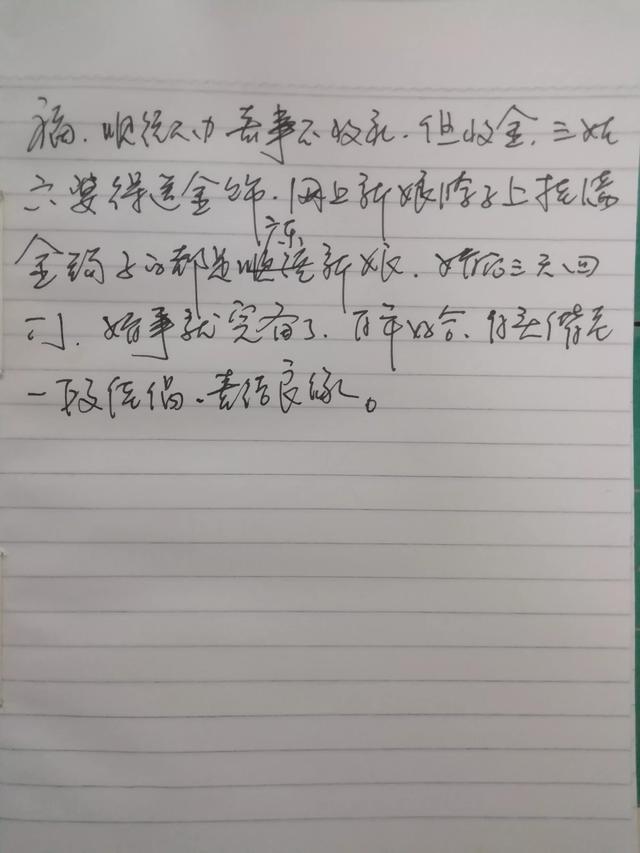 福.顺德人办喜事不收礼.但收金.三姑
六婆得送金饰.网上新娘脖子上挂满
金镯子的都是广东新娘.婚后三天回
门.婚事就完备了.百年好合.白头偕老
一段佳偶.喜结良缘。